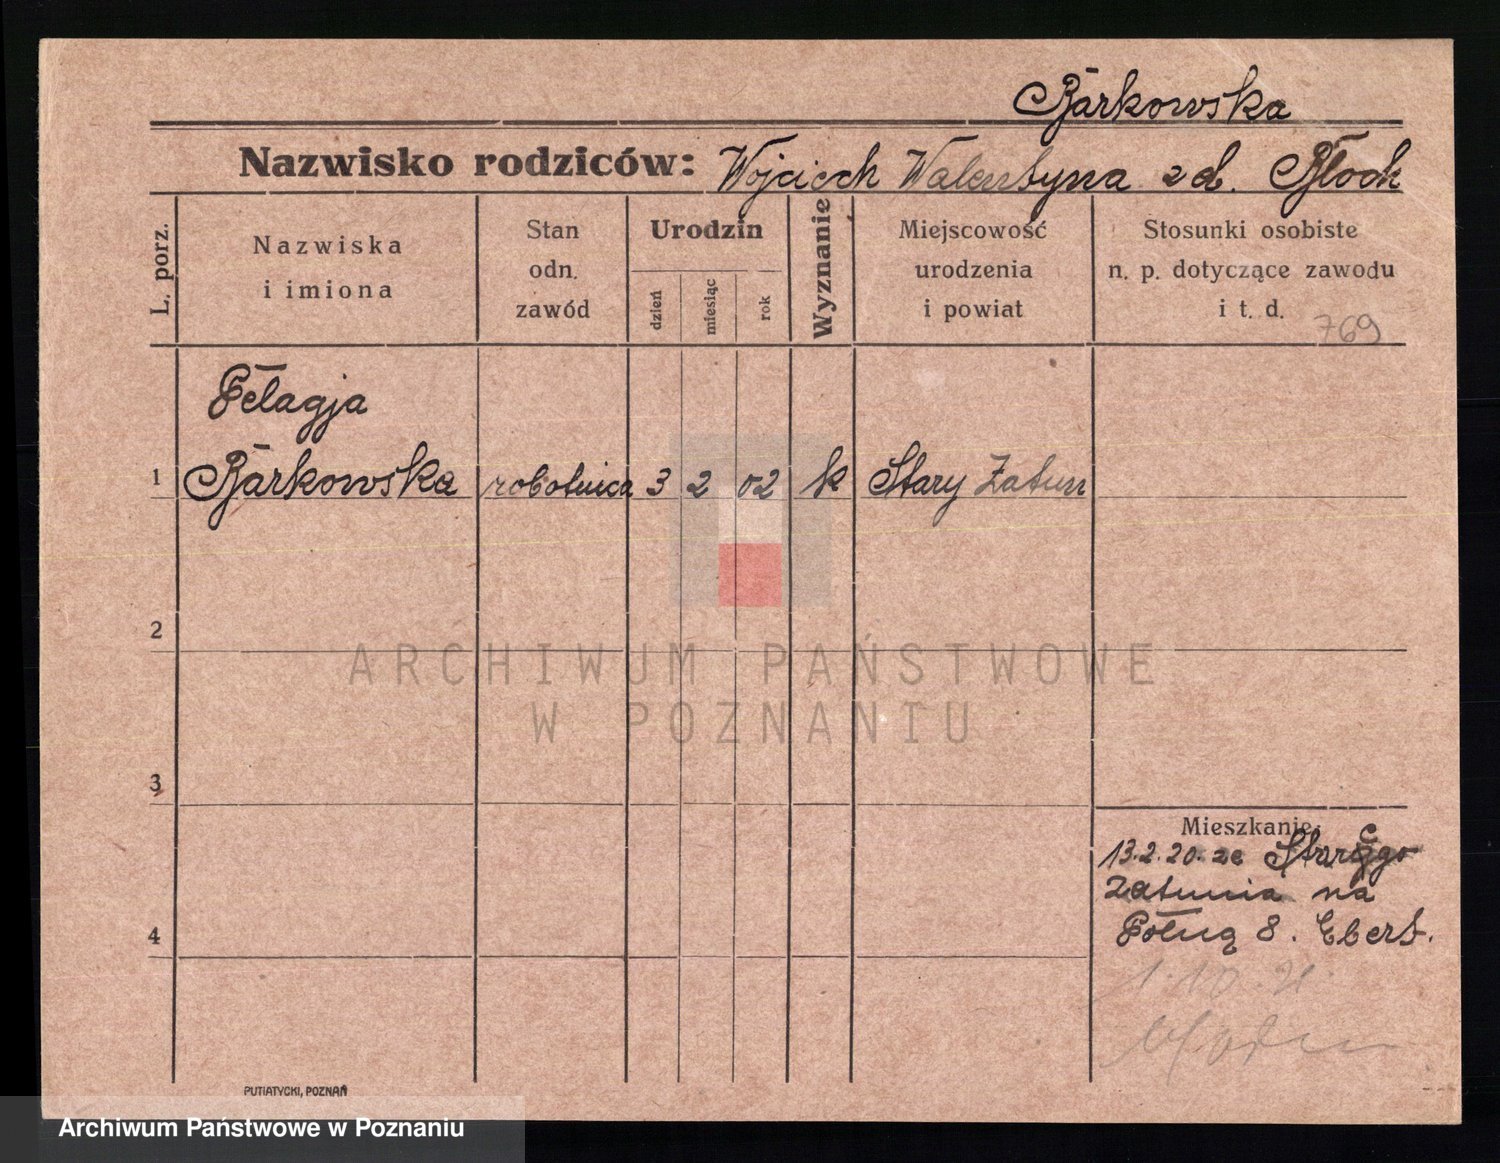 Barkowska
Nazwisko rodziców: Wojciech Walentyna zd. Błoch
L. porz.
Nazwiska
i imiona
Stan
odn.
zawód
Urodzin
dzień
miesiąc
rok
Wyznanie
Miejscowość
urodzenia
i powiat
Stosunki osobiste
n. p. dotyczące zawodu
i t. d.
769
Pelagja
1 Barkowska robotnica 3 2 02 k Stary Zatum
2
3
4
Mieszkanie:
13.2.20. ze Starego
Zatumia na
8. Ebert.
1.10.21.
PUTIATYCKI, POZNAŃ
ARCHIWUM PAŃSTWOWE
W POZNANIU
Archiwum Państwowe w Poznaniu